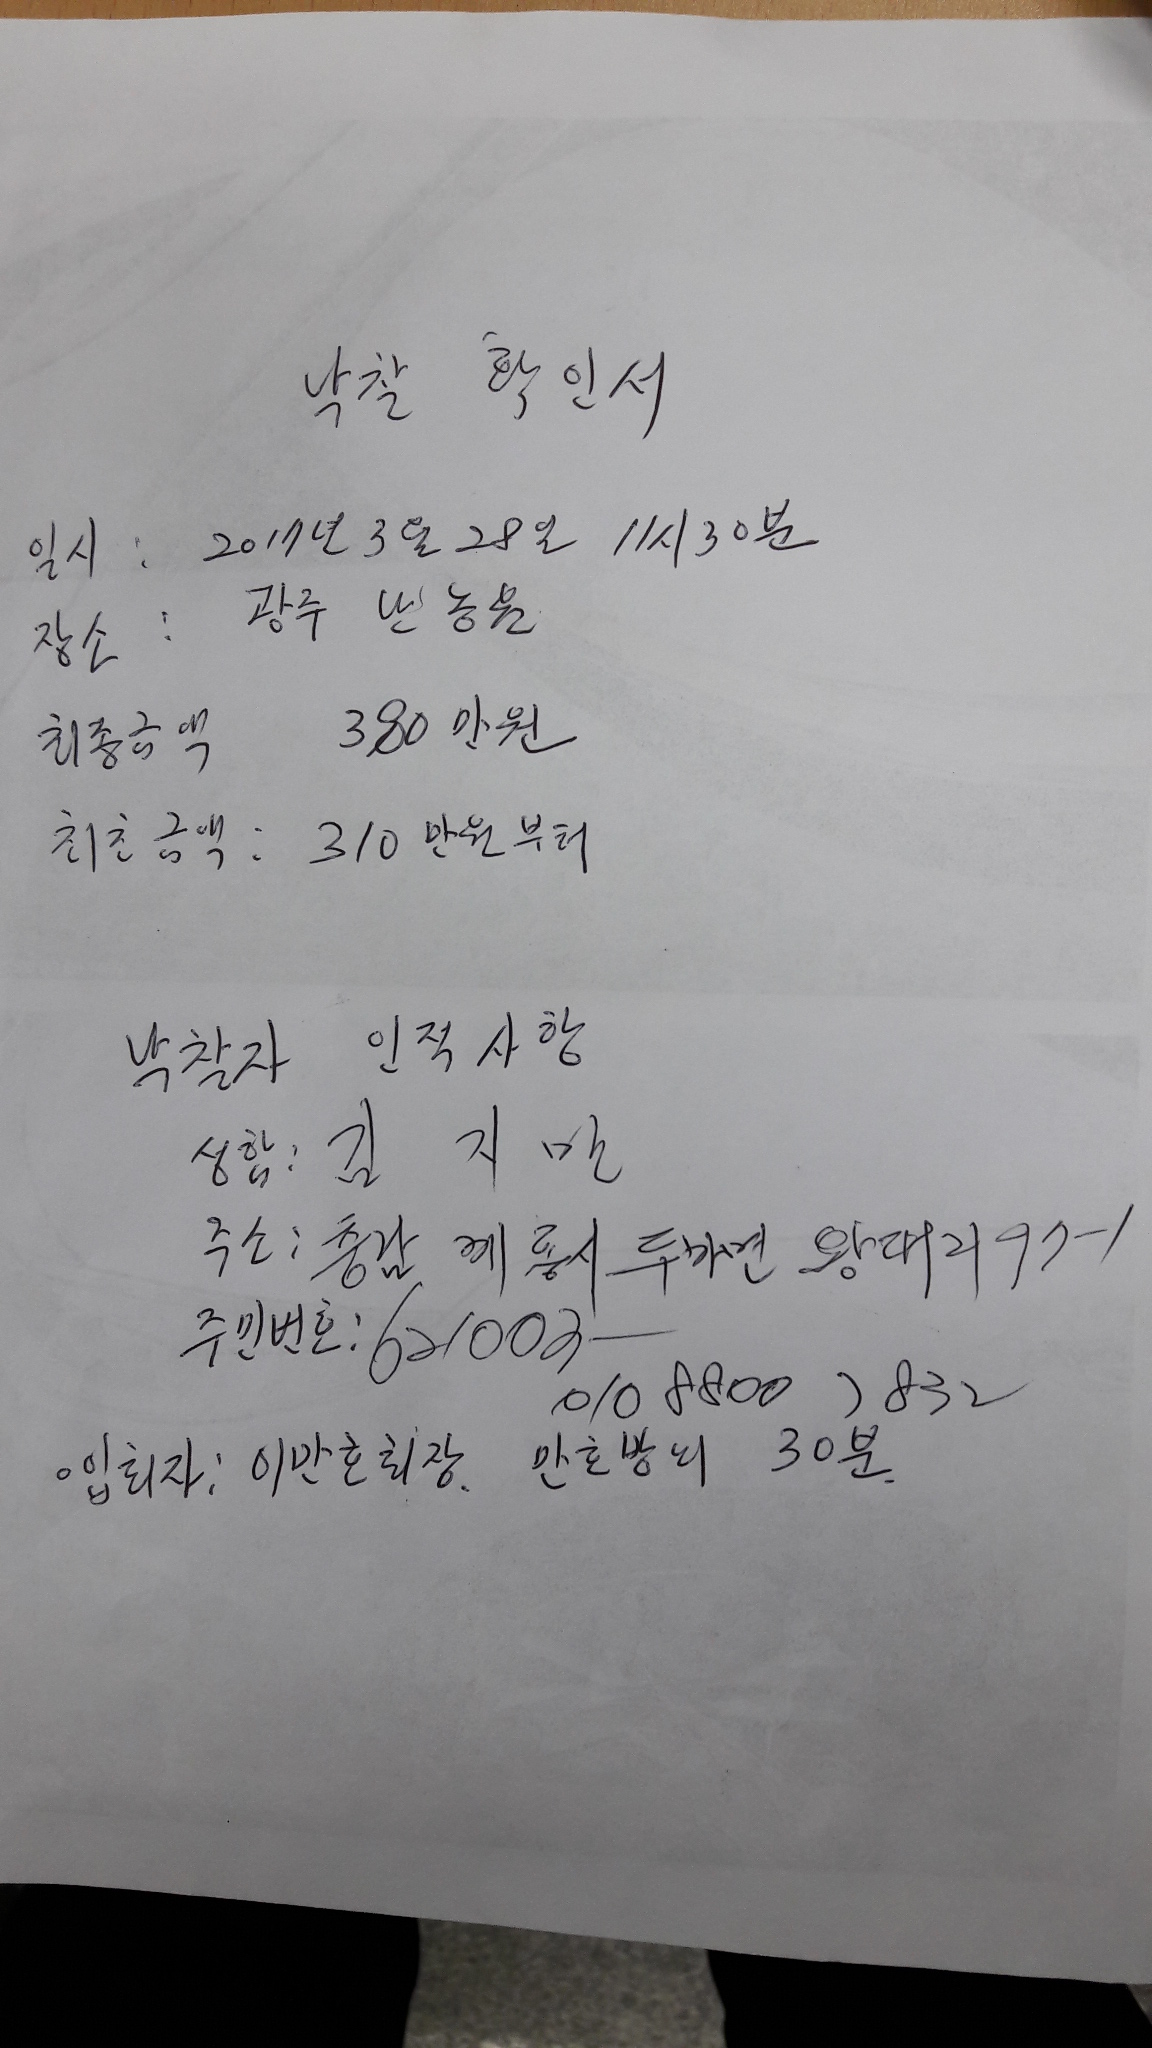 낙찰 확인서
일시 : 2017년 3월 28일 11시 30분
장소 : 광주 난농원
최종금액 380만원
최초금액 : 310만원부터
낙찰자 인적사항
성함 : 김 지만
주소 : 충남 계룡시 두마면 왕대리 97-1
주민번호 : 621003-
010 8800 7832
입회자 : 이만호회장. 만호방외 30분.